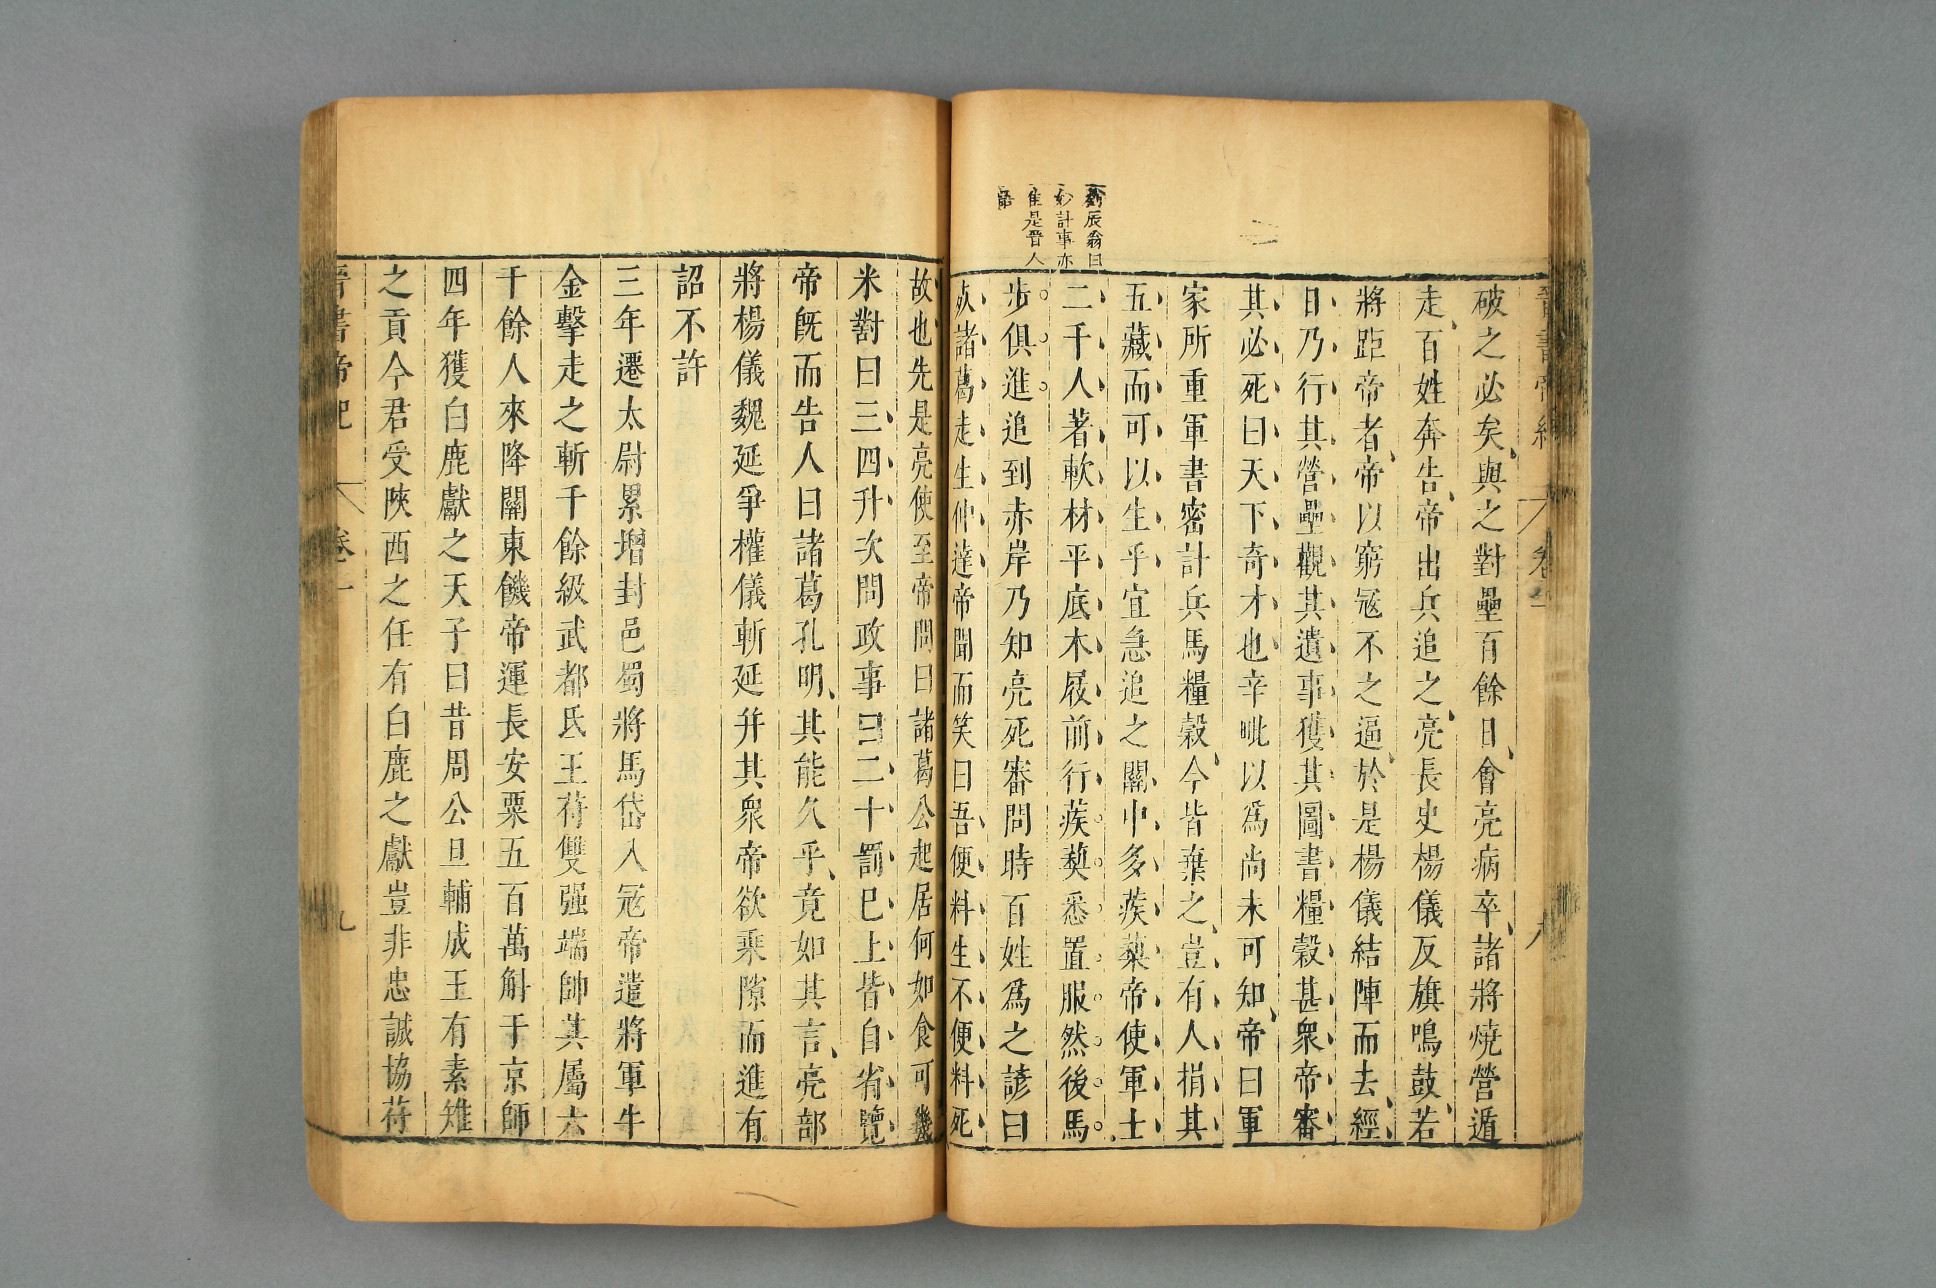 晉書帝紀 卷一 八
破之必矣與之對壘百餘日會亮病卒諸將燒營遁
走百姓奔告帝出兵追之亮長史楊儀反旗鳴鼓若
將距帝者帝以窮寇不之逼於是楊儀結陣而去經
日乃行其營壘觀其遺事獲其圖書糧穀甚衆帝審
其必死曰天下奇才也辛毗以爲尚未可知帝曰軍
家所重軍書密計兵馬糧穀今皆棄之豈有人捐其
五藏而可以生乎宜急追之關中多蒺蔾帝使軍士
二千人著軟材平底木屐前行蒺蔾悉置服然後馬
步俱進追到赤岸乃知亮死審問時百姓爲之諺曰
死諸葛走生仲達帝聞而笑曰吾便料生不便料死
劉辰翁曰
妙計事亦
隹是晉人
語
故也先是亮使至帝問曰諸葛公起居何如食可幾
米對曰三四升次問政事曰二十罰巳上皆自省覽
帝旣而告人曰諸葛孔明其能久乎竟如其言亮部
將楊儀魏延爭權儀斬延并其衆帝欲乘隙而進有
詔不許
三年遷太尉累增封邑蜀將馬岱入寇帝遣將軍牛
金擊走之斬千餘級武都氐王苻雙强端帥其屬六
千餘人來降關東饑帝運長安粟五百萬斛于京師
四年獲白鹿獻之天子曰昔周公旦輔成王有素雉
之貢今君受陝西之任有白鹿之獻豈非忠誠協苻
晉書帝紀 卷一 九